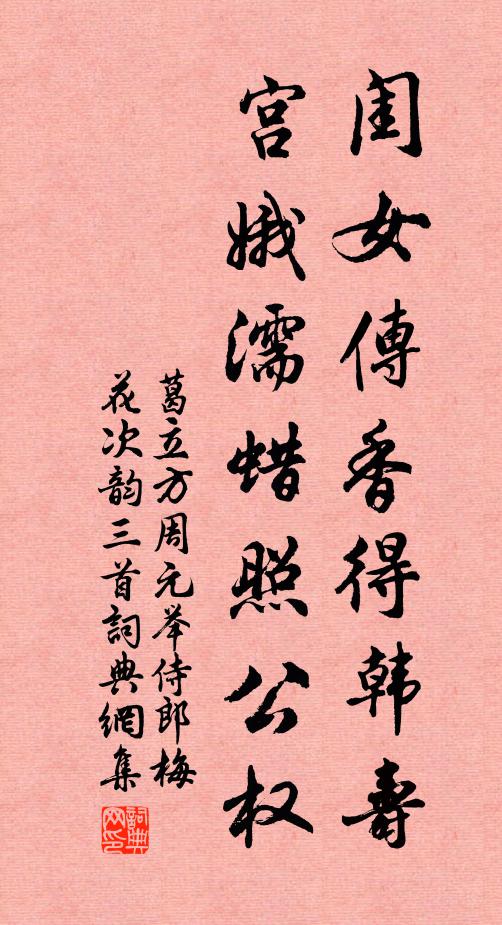 闺女傳香得韩壽
宫娥濡蜡照公权
葛立方周元举侍郎梅
花次韵三首詞典網集
詞典
网印